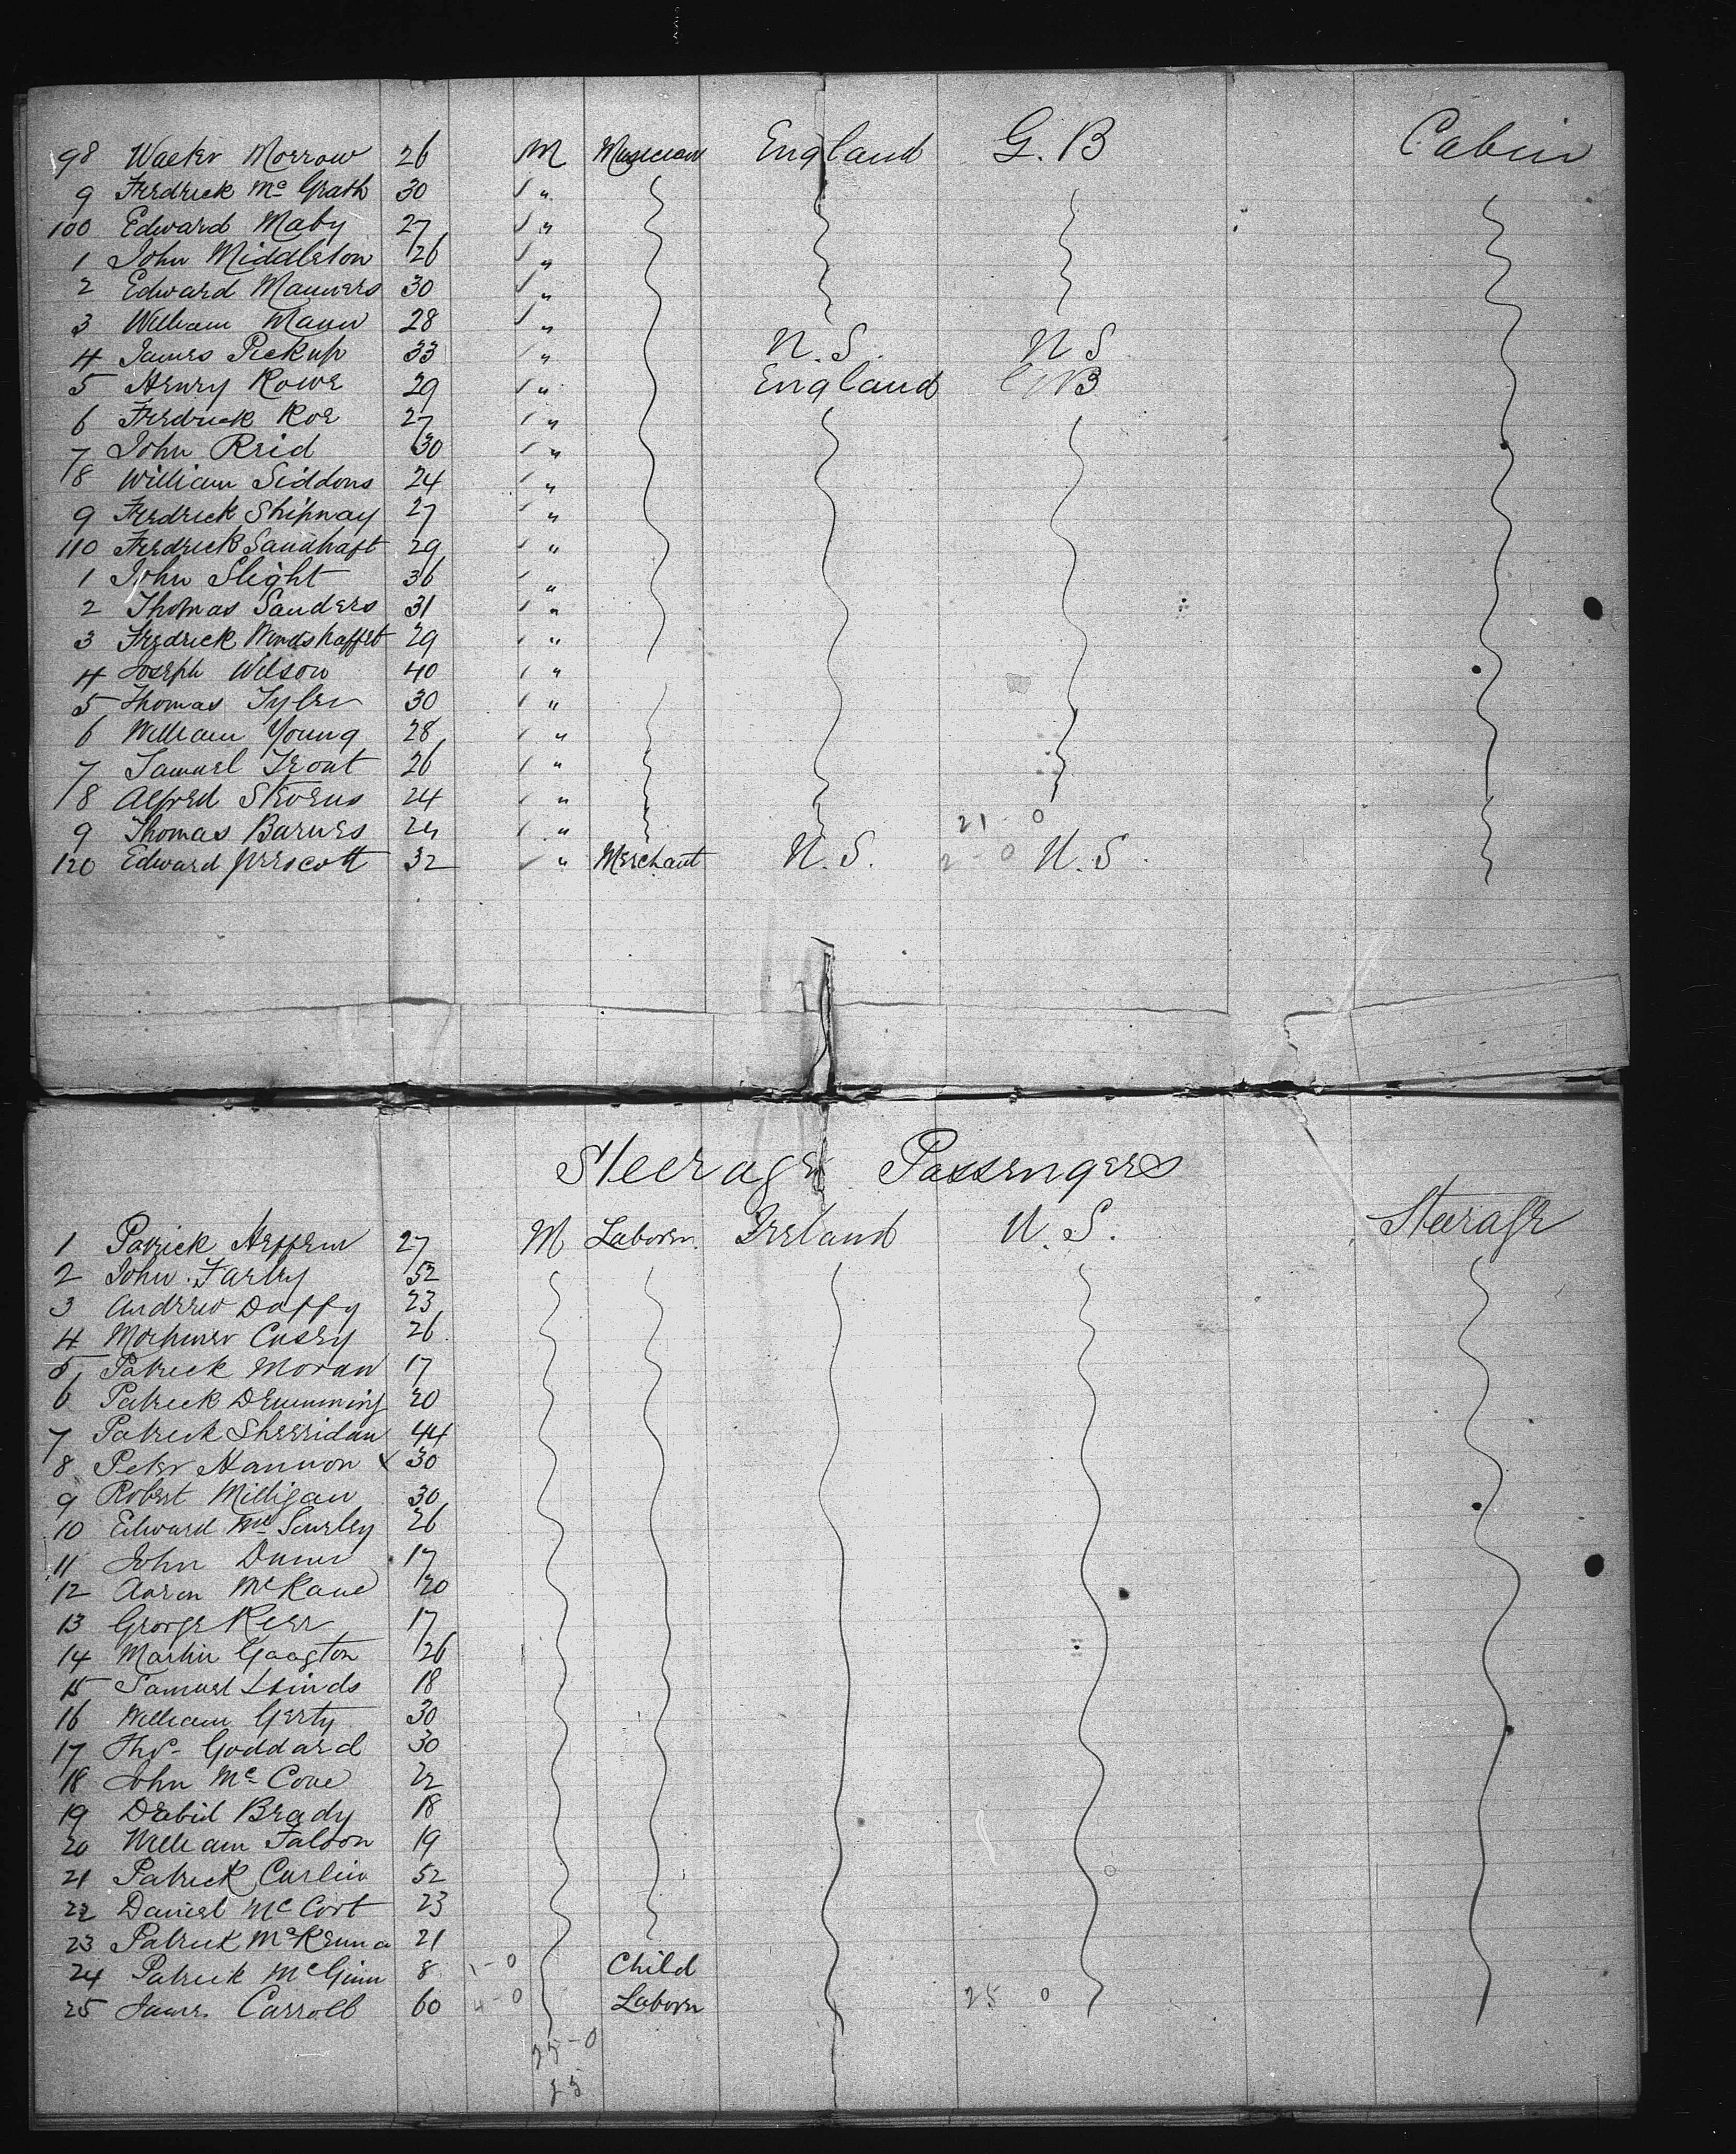 98 Walter Morrow 26 M Musician England G. B Cabin
9 Fredrick Mc Grath 30 "
100 Edward Maby 27 "
1 John Middleton 26 "
2 Edward Manners 30 "
3 William Mann 28 "
4 James Pickup 33 " U. S. U S
5 Henry Rowe 29 " England G B
6 Fredrick Roe 27 "
7 John Reid 30 "
8 William Siddons 24 "
9 Fredrick Shipway 27 "
110 Fredrick Sandhaft 29 "
1 John Slight 36 "
2 Thomas Sanders 31 "
3 Fredrick 29 "
4 Joseph Wilson 40 "
5 Thomas Tyler 30 "
6 William Young 28 "
7 Samuel Trout 26 "
8 Alfred Stevens 24 "
9 Thomas Barnes 24 " 21 - 0
120 Edward Prescott 32 " Merchant U. S. 2 - 0 U. S.
Steerage Passengers
1 Patrick Heffern 27 M Laborer Ireland U. S. Steerage
2 John Farley 52
3 Andrew Duffy 23
4 Mortimer Casey 26
5 Patrick Moran 17
6 Patrick 20
7 Patrick Sherridan 44
8 Peter Hannon x 30
9 Robert Milligan 30
10 Edward 26
11 John Dunn 17
12 Aaron McKane 20
13 George Kerr 17
14 Martin 26
15 Samuel Hinds 18
16 William Gerty 30
17 Thos Goddard 30
18 John Mc Cone 22
19 David Brady 18
20 William Faloon 19
21 Patrick Curlin 52
22 Daniel Mc Cort 23
23 Patrick McKenna 21
24 Patrick McGinn 8 1 - 0 Child
25 James Carroll 60 4 - 0 Laborer 25 0
25 - 0
25